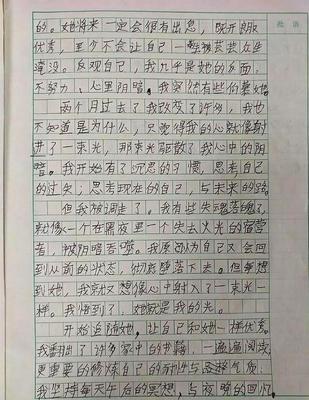 批 语
的。她将来一定会很有出息，既开朗又
优秀，至少不会让自己一生被茫茫众生
淹没。反观自己，我几乎是她的反面，
不努力、心里阴暗。我突然有些仰慕她。
两个月过去了我改变了许多，我也
不知道是为什么，只觉得我的心就像射
进了一束光，那束光驱散了我心中的阴
暗。我开始有了沉思的习惯，思考自己
的过失；思考现在的自己，与未来的路。
但我被调走了。我有些失魂落魄了，
就像一个在黑夜里一个失去火光的
者，被阴暗吞噬。我原以为自己又会回
到从前的状态，彻底堕落下去。但每想
到她，我就又想像心中射入了一束光一
样。我悟到了，她就是我的光。
开始追随她，让自己和她一样优秀。
我翻出了许多家中的书籍，一遍遍阅读，
更重要的修炼自己的耐性与忍耐气质，
我坚持每天午后的冥想，与夜晚的回忆，